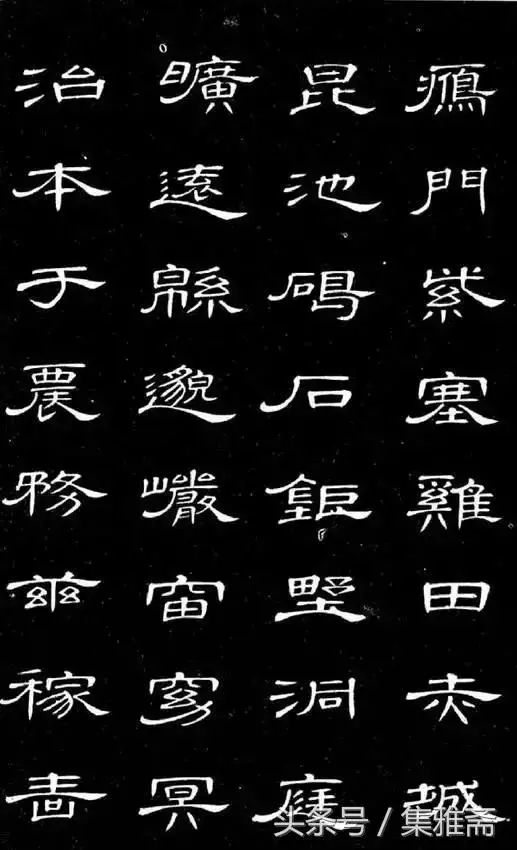 鴈門紫塞雞田赤城
昆池碣石鉅野洞庭
曠遠緜邈巖岫窈冥
治本于農務茲稼嗇
头条号 / 集雅斋